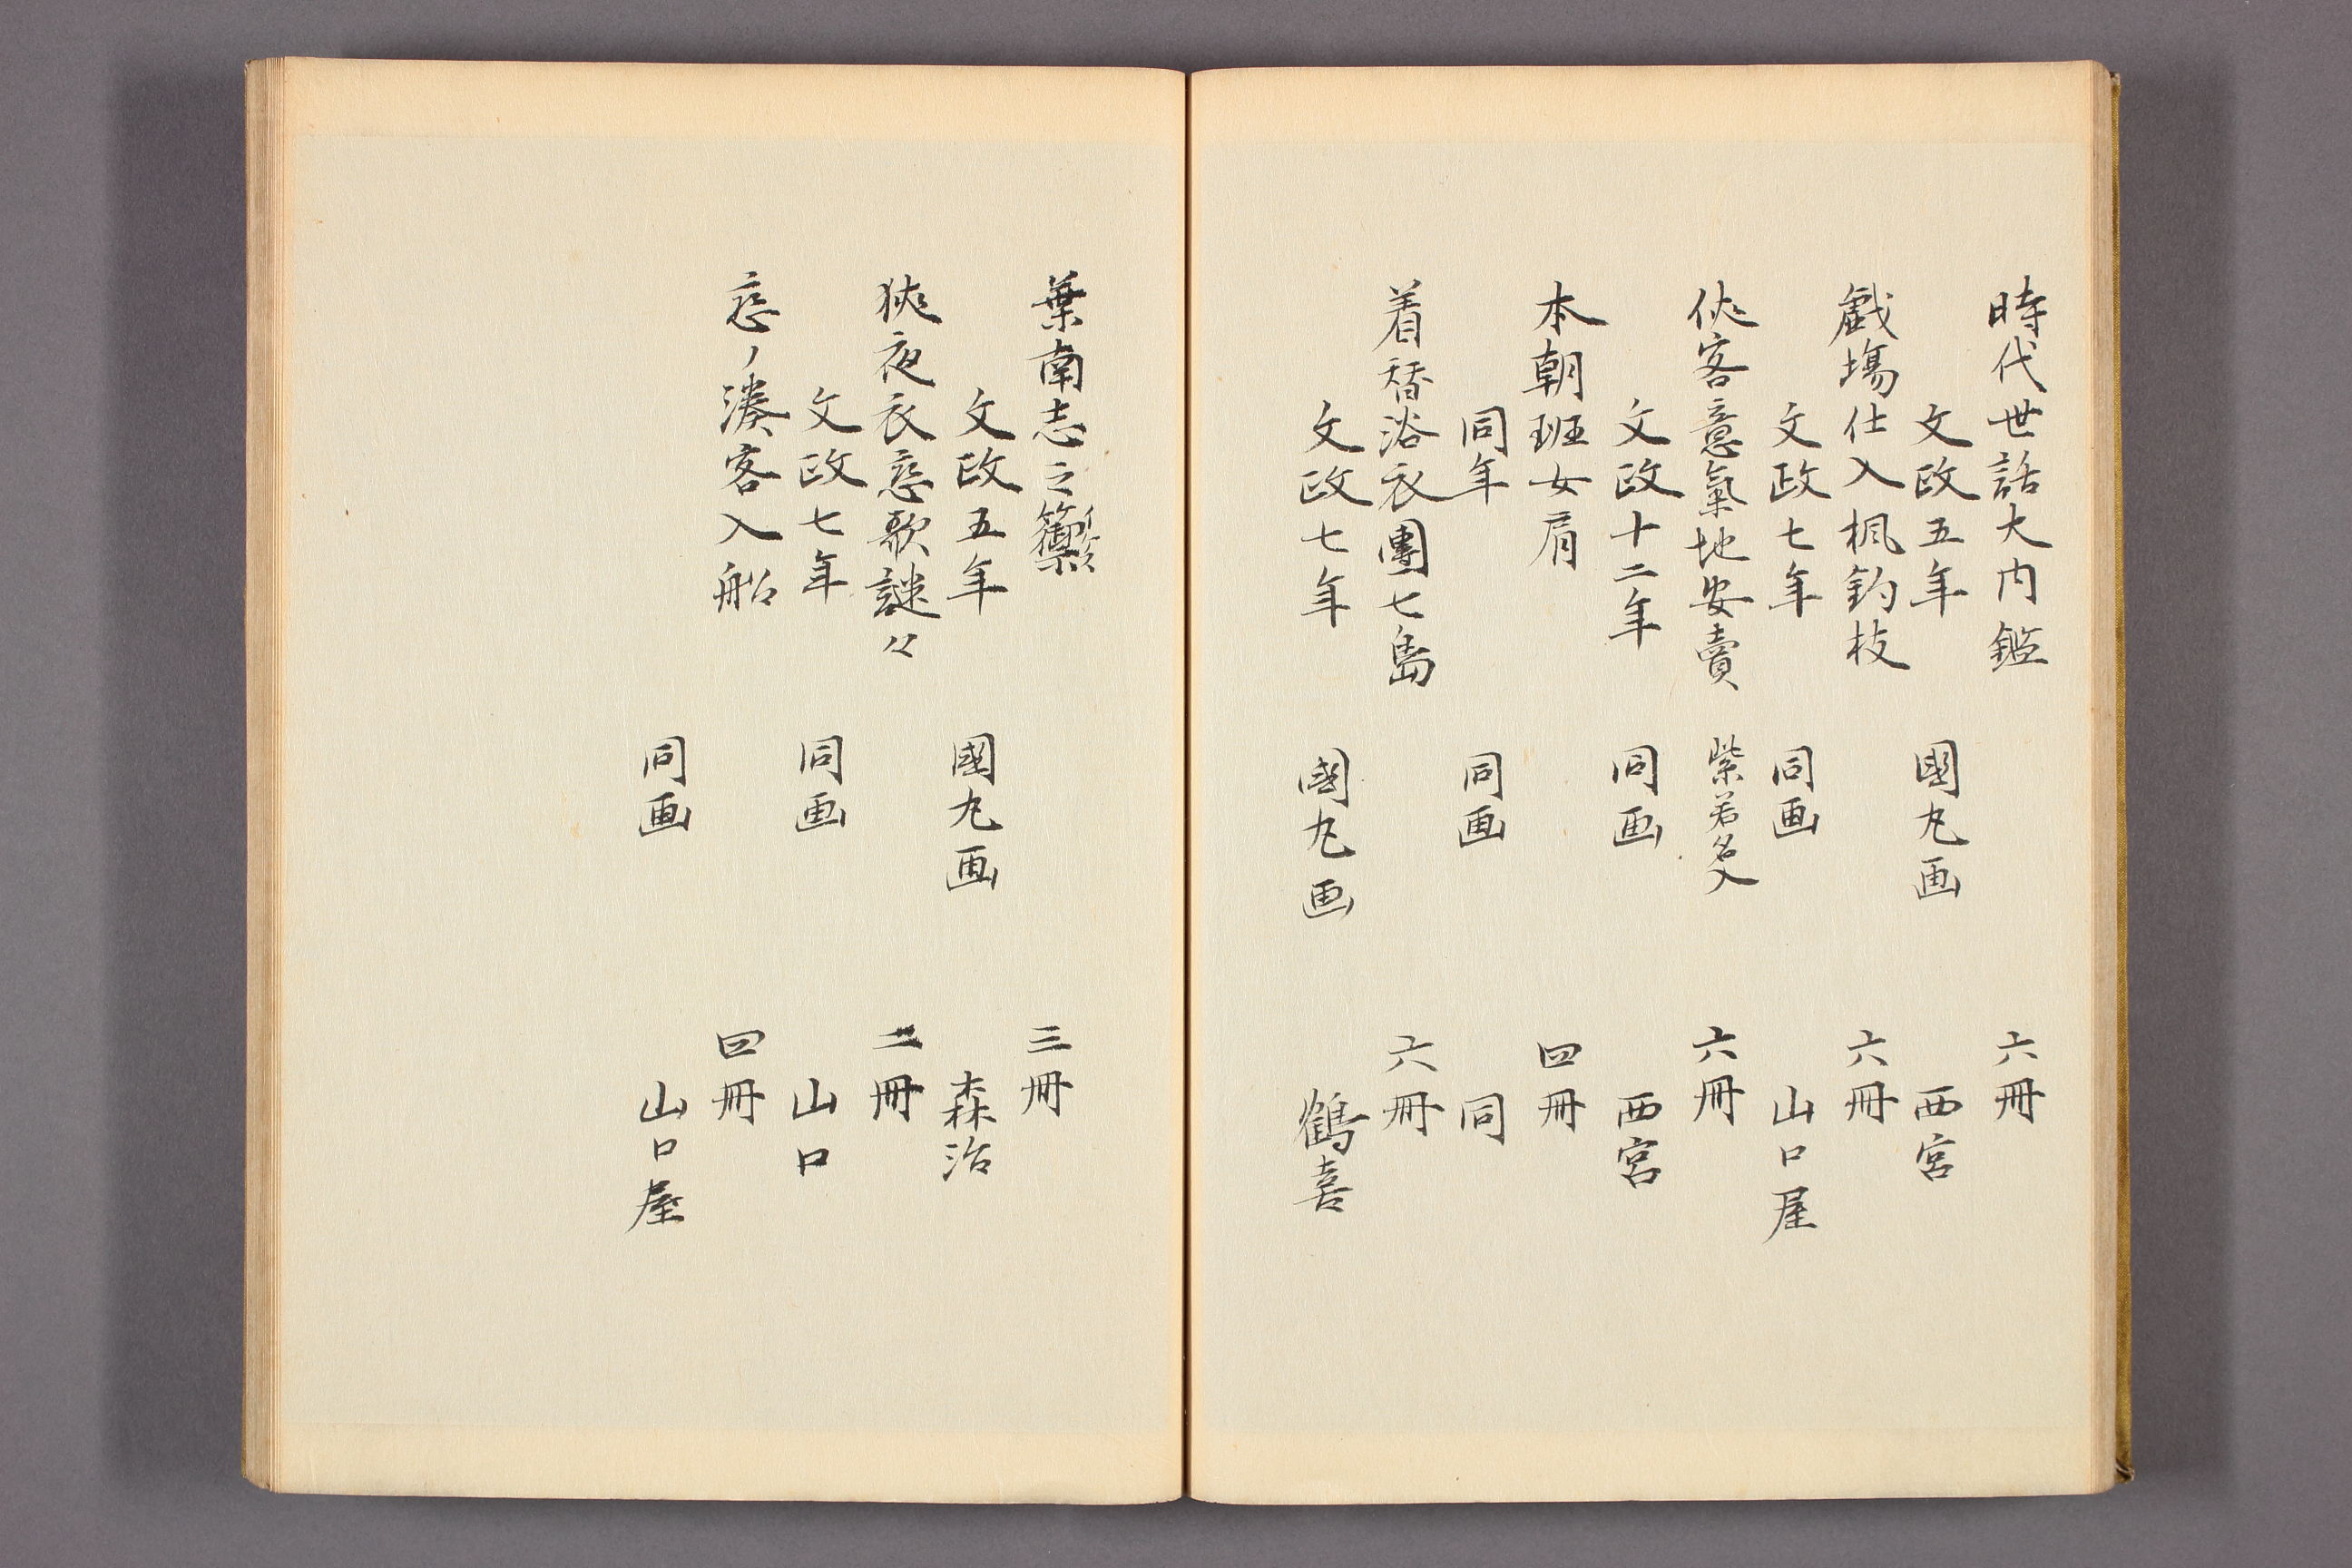 時代世話大内鑑 六冊
文政五年 國丸画 西宮
戯場仕入楓釣枝 六冊
文政七年 同画 山口屋
侠客意氣地安賣 紫若名入 六冊
文政十二年 同画 西宮
本朝班女肩 四冊
同年 同画 同
着替浴衣團七島 六冊
文政七年 國丸画 鶴喜
葉南志之 三冊
文政五年 國丸画 森治
狹夜衣恋歌謎々 二冊
文政七年 同画 山口
恋ノ湊客入船 四冊
同画 山口屋